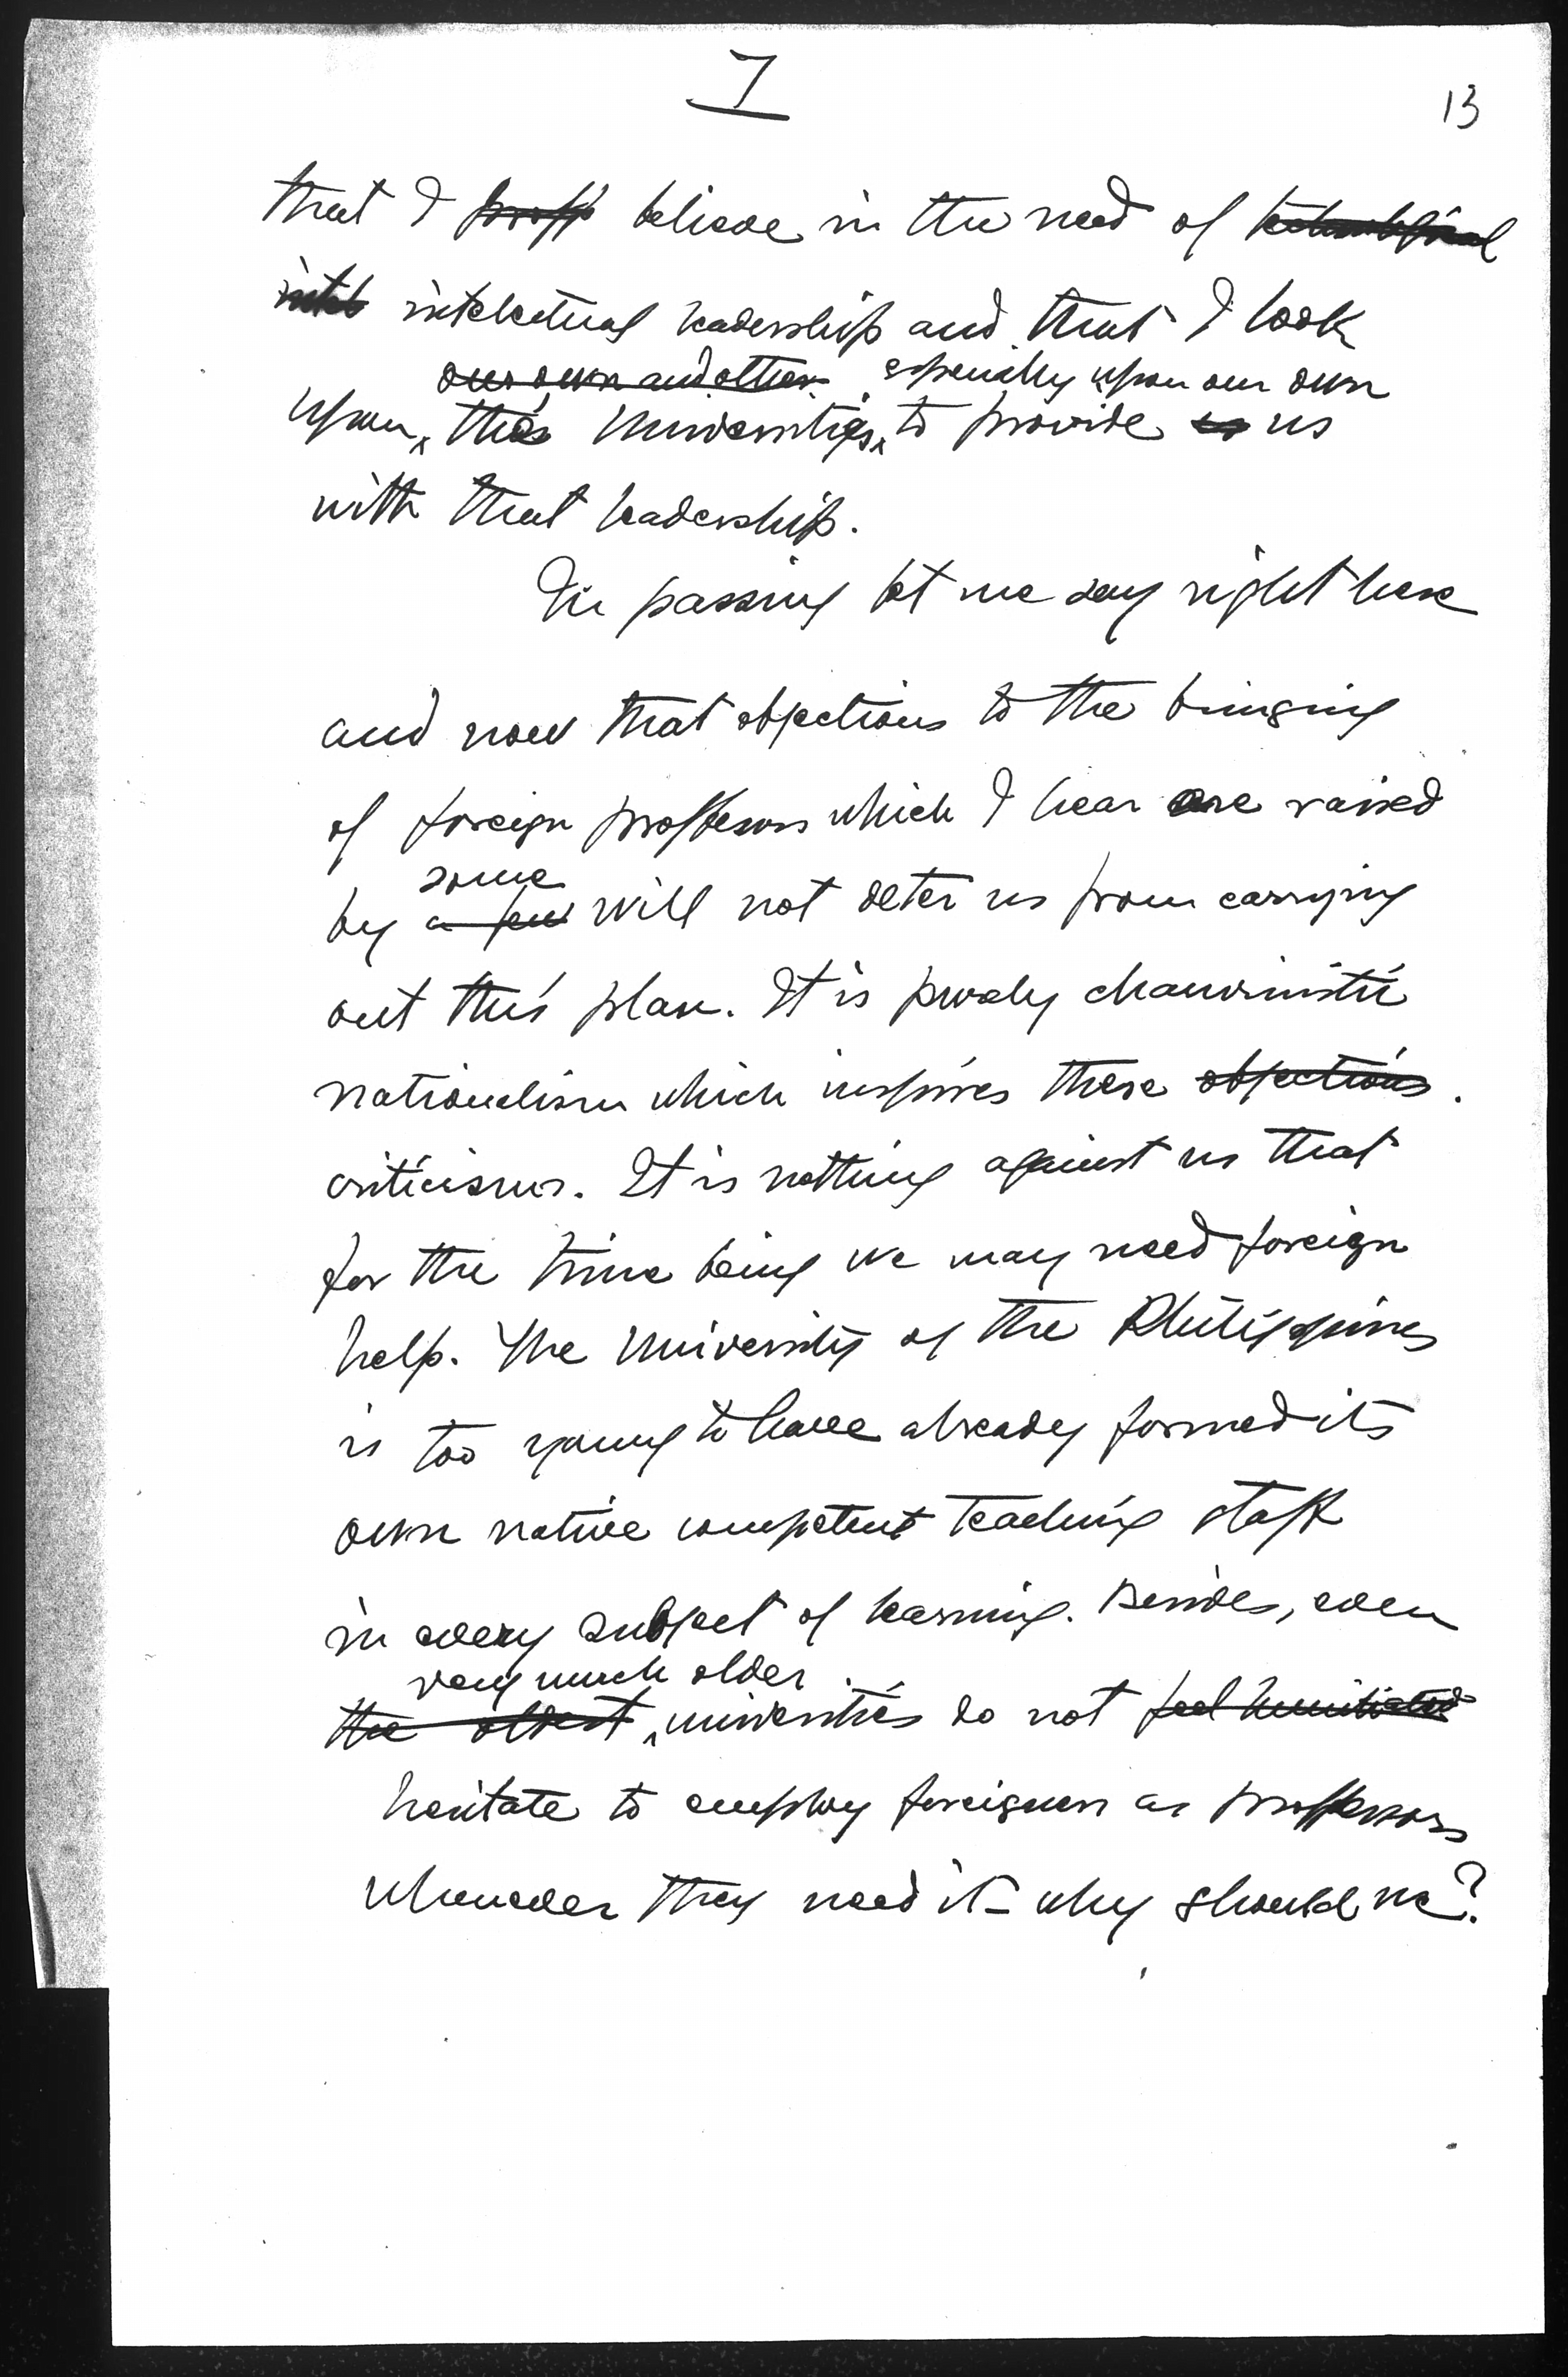 7
13
that I proff believe in the need of technological
intel intelectual leadership and that I look
our own and other especially upon our own
upon the Universities to provide us
with that leadership.
In passing let me say right here
and now that objections to the bringing
of foreign professors which I hear are raised
some
by a few will not deter us from carrying
out this plan. It is purely chauvinistic
nationalism which inspires these objections.
criticisms. It is nothing against us that
for the time being we may need foreign
help. The University of the Philippines
is too young to have already formed its
own native competent teaching staff
in every subject of learning. Besides, even
very much older
the oldest universities do not feel humiliated
hesitate to employ foreigners as professors
whenever they need it - why should we?